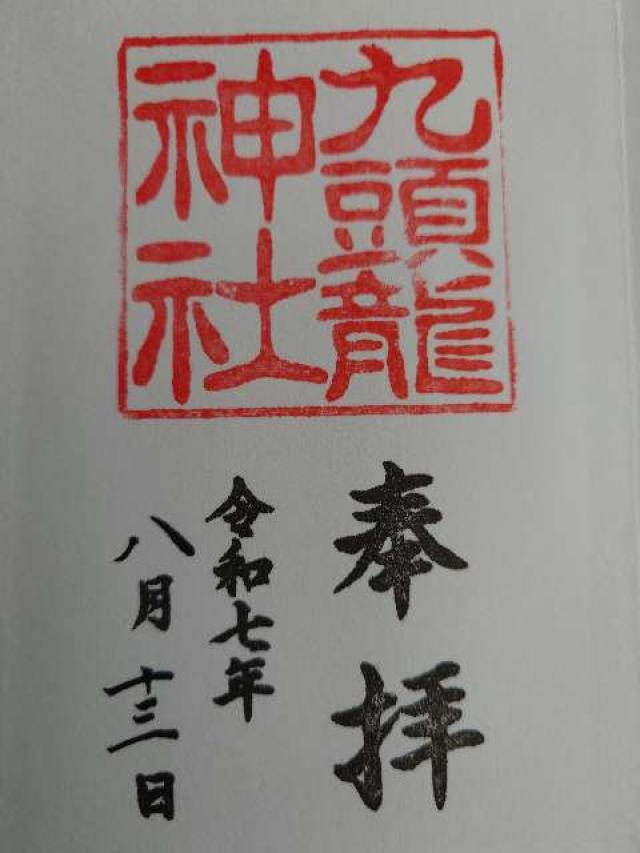 九頭龍
神社
奉拝
令和七年
八月十三日